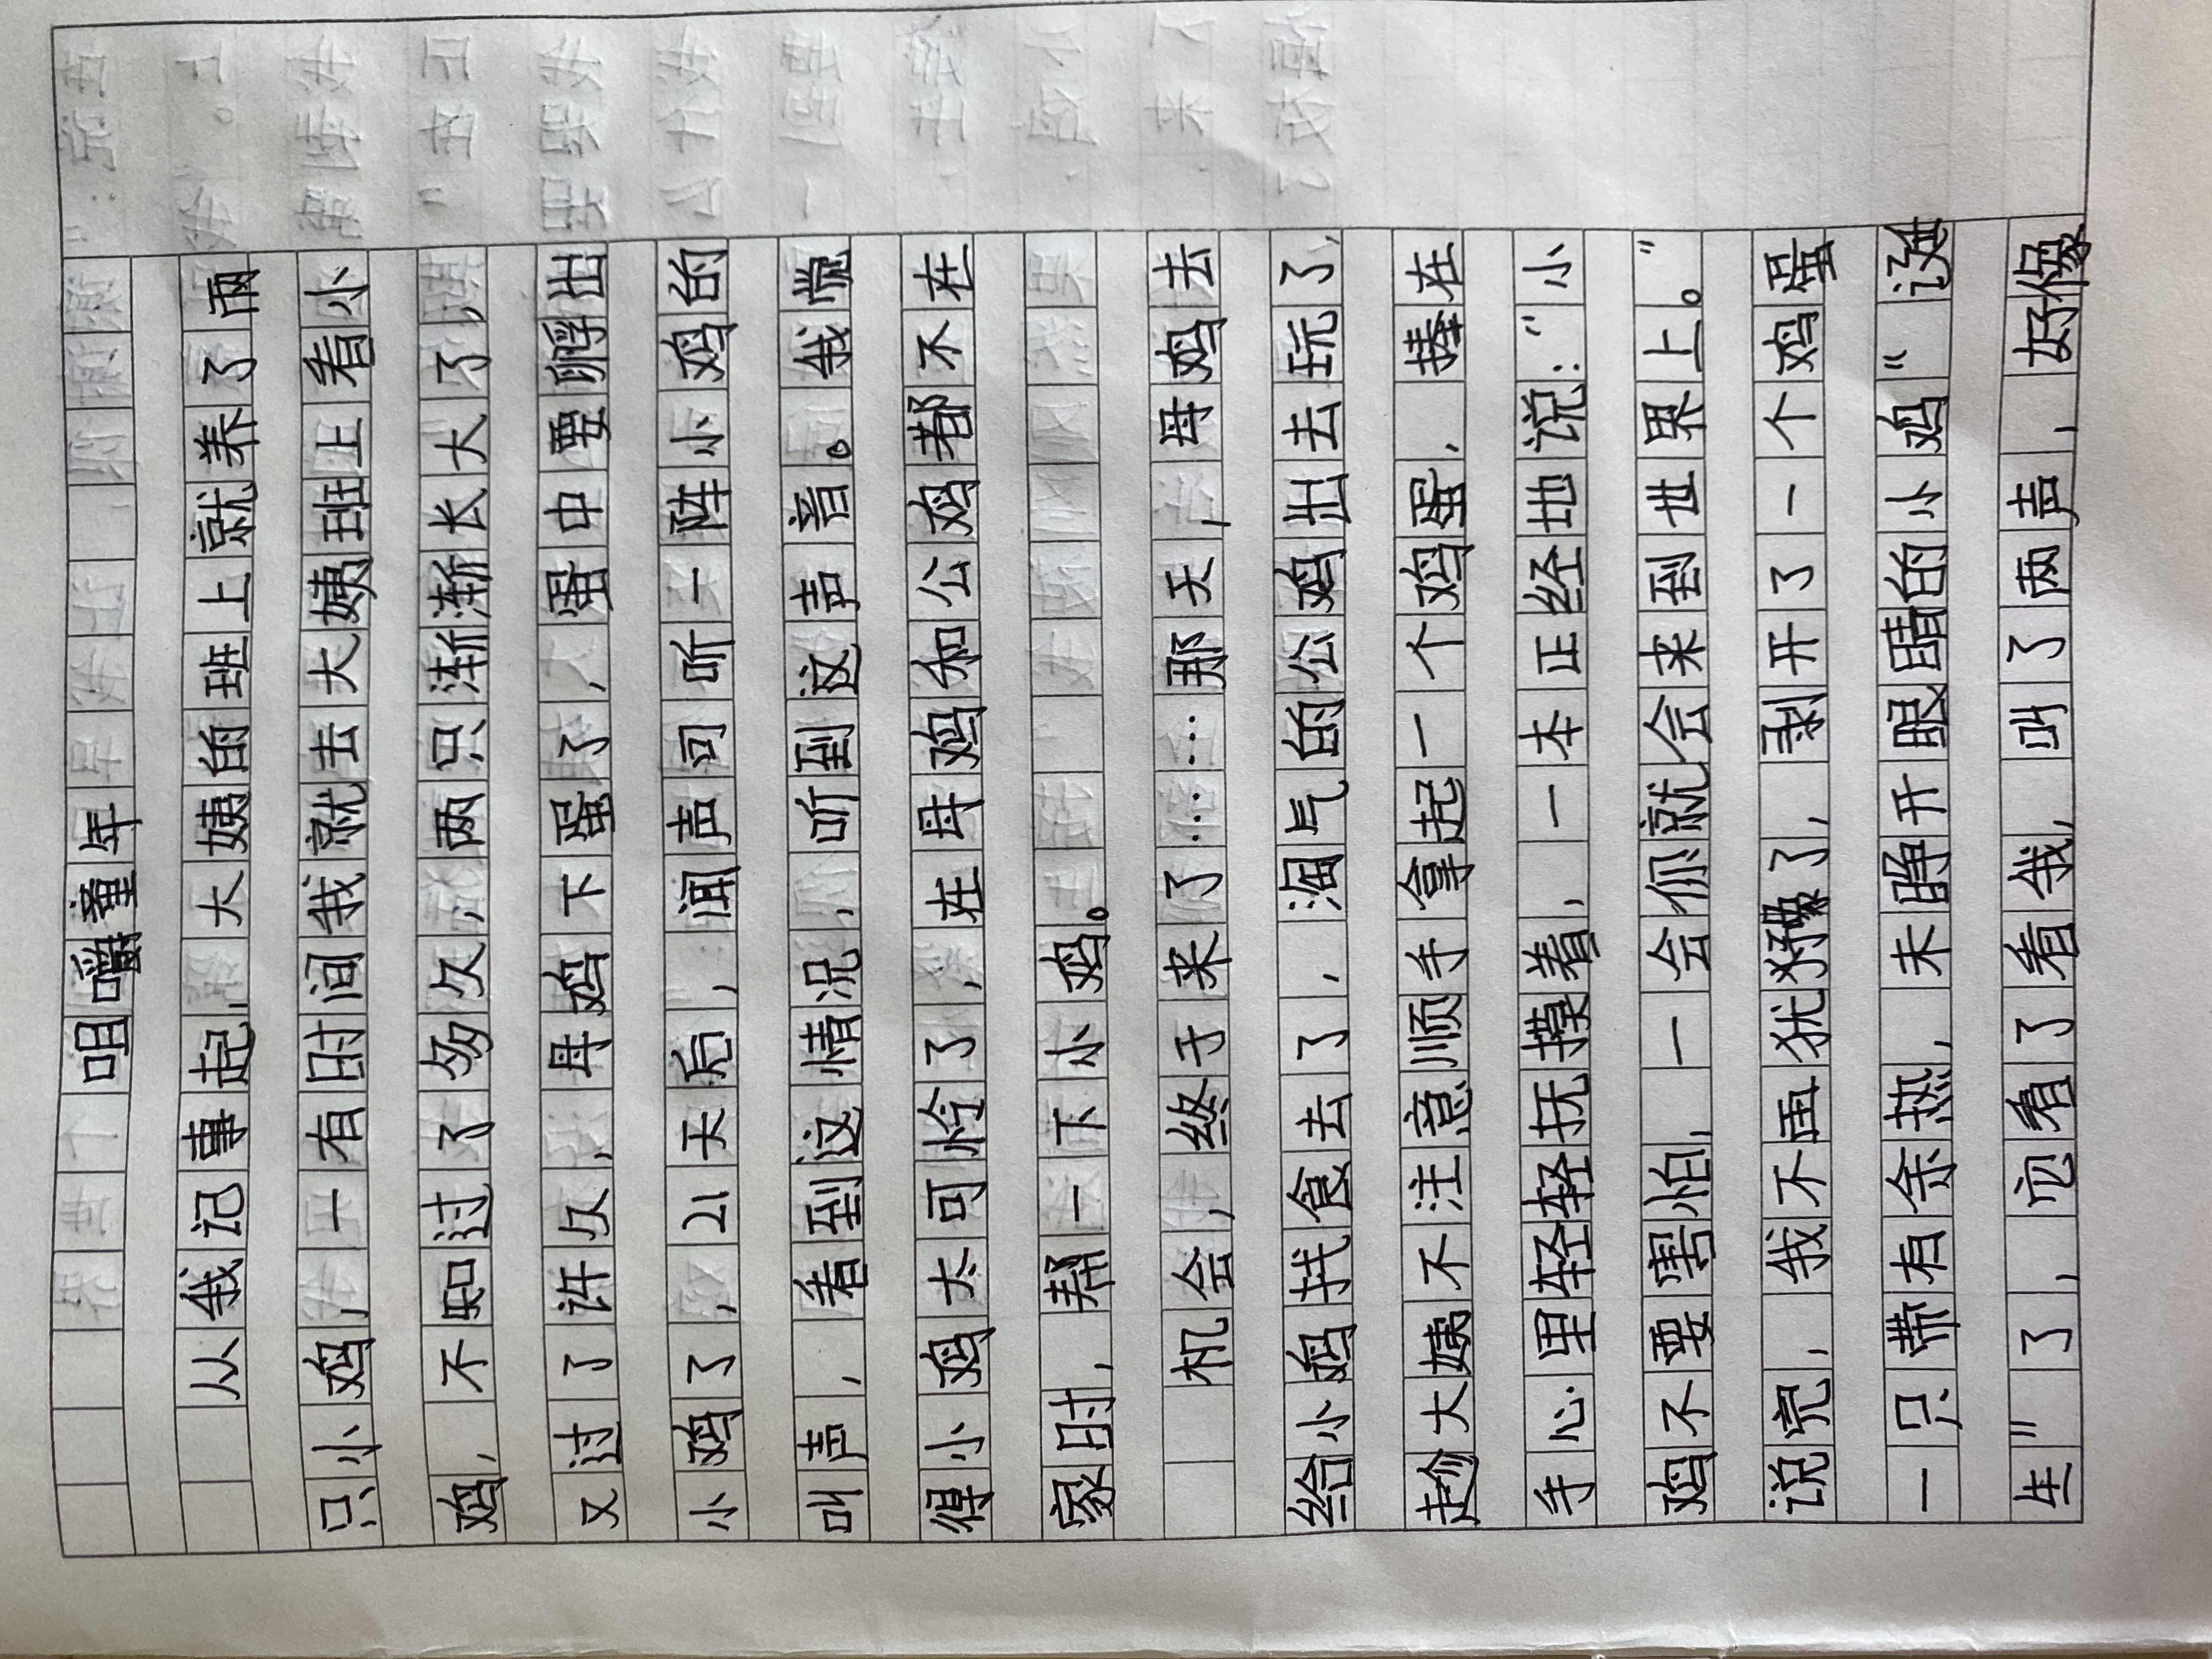 咀嚼童年
从我记事起,大姨的班上就养了两
只小鸡,一有时间我就去大姨班上看小
鸡,不知过了多久,两只渐渐长大了,
又过了许久,母鸡下蛋了,蛋中要孵出
小鸡了,21天后,闻声可听一阵小鸡的
叫声,看到这情况,听到这声音。我觉
得小鸡太可怜了,在母鸡和公鸡都不在
家时,帮一下小鸡。
机会,终于来了……那天,母鸡去
给小鸡找食去了,淘气的公鸡出去玩了,
趁大姨不注意顺手拿起一个鸡蛋,捧在
手心里轻轻抚摸着,一本正经地说:“小
鸡不要害怕,一会你就会来到世界上。”
说完,我不再犹豫了,剥开了一个鸡蛋
一只带有余热,未睁开眼睛的小鸡“诞
生”了,它看了看我,叫了两声,好像